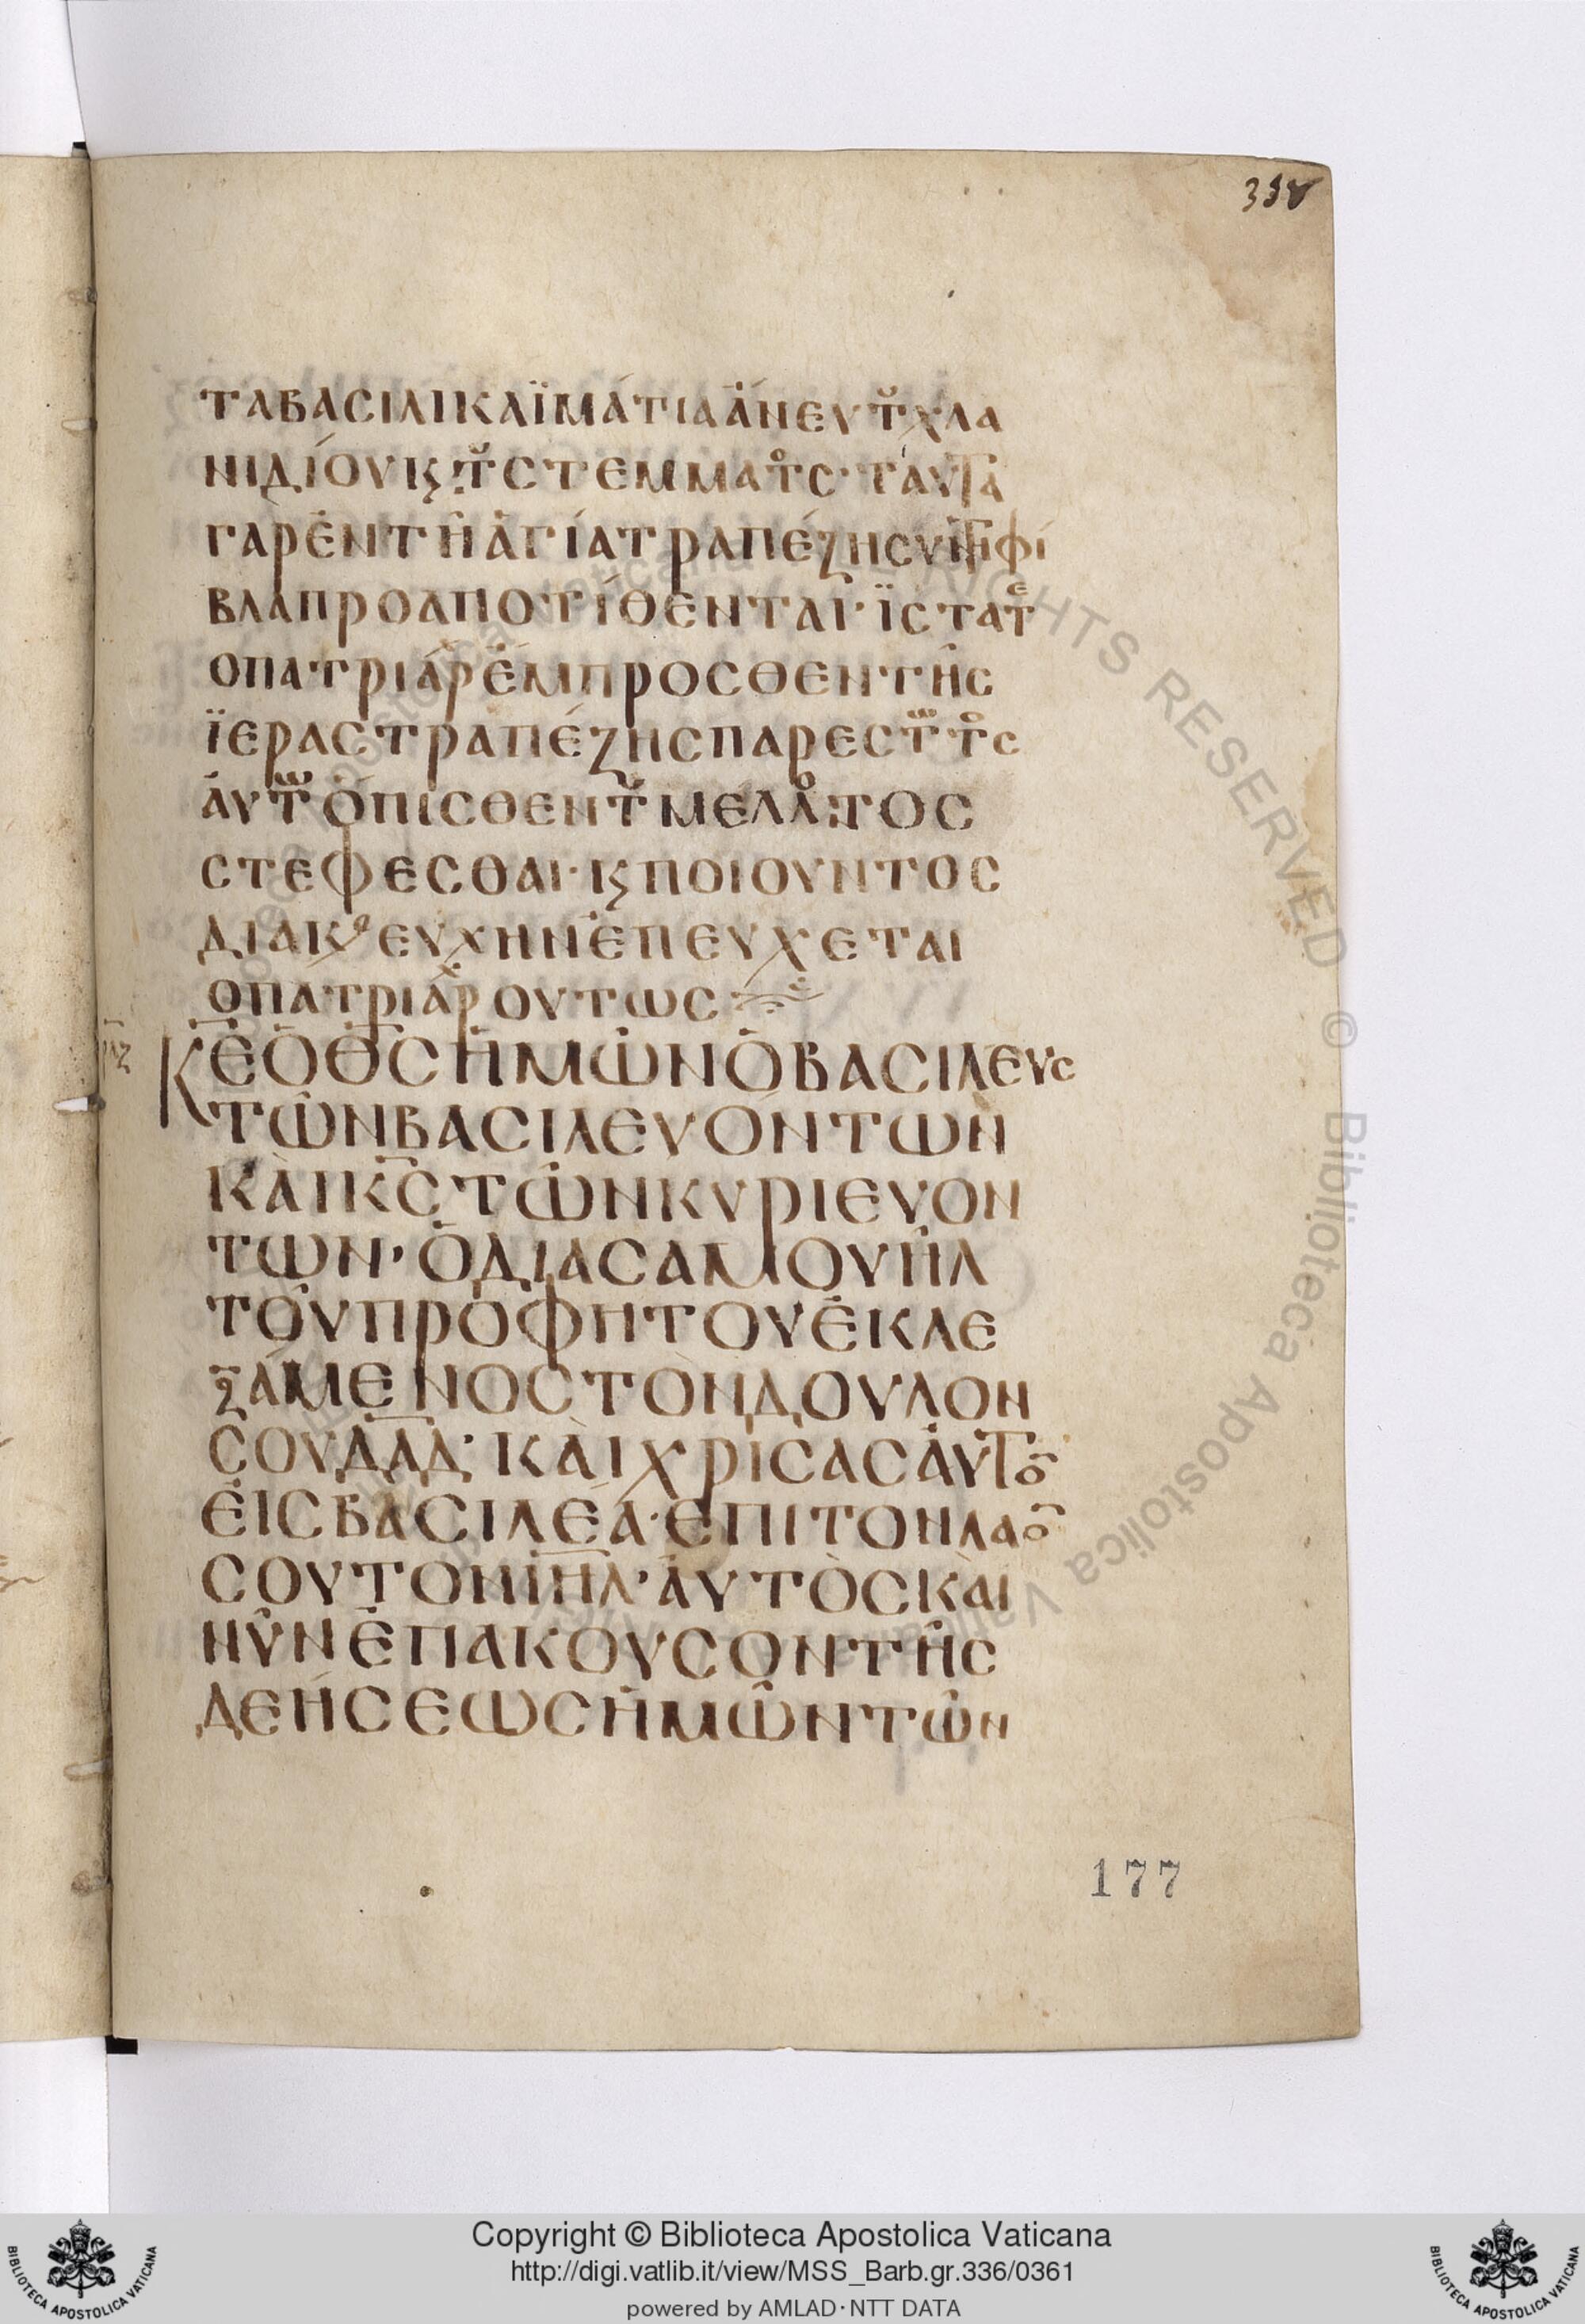 338
ΤΑΒΑCΙΛΙΚΑΪΜΑΤΙΑΑΝΕΥΤΟΥΧΛΑ
ΝΙΔΙΟΥΚϚΤΟΥCΤΕΜΜΑΤΟC·ΤΑΥΤΑ
ΓΑΡΕΝΤΗΑΓΙΑΤΡΑΠΕΖΗCΥΝΤΗΦΙ
ΒΛΑΠΡΟΑΠΟΤΙΘΕΝΤΑΙ·ΪCΤΑΤΕ
ΟΠΑΤΡΙΑΡΕΜΠΡΟCΘΕΝΤΗC
ΪΕΡΑCΤΡΑΠΕΖΗCΠΑΡΕCΤΩΤΟC
ΑΥΤΩΟΠΙCΘΕΝΤΟΥΜΕΛΛΟΝΤΟC
CΤΕΦΕCΘΑΙ·ΚϚΠΟΙΟΥΝΤΟC
ΔΙΑΚΟΕΥΧΗΝΕΠΕΥΧΕΤΑΙ
ΟΠΑΤΡΙΑΡΧΟΥΤΩC
ΚΕΟΘCΗΜΩΝΟΒΑCΙΛΕΥC
ΤΩΝΒΑCΙΛΕΥΟΝΤΩΝ
ΚΑΙΚCΤΩΝΚΥΡΙΕΥΟΝ
ΤΩΝ·ΟΔΙΑCΑΜΟΥΗΛ
ΤΟΥΠΡΟΦΗΤΟΥΕΚΛΕ
ΞΑΜΕΝΟCΤΟΝΔΟΥΛΟΝ
CΟΥΔΑΔ·ΚΑΙΧΡΙCΑCΑΥΤΟ
ΕΙCΒΑCΙΛΕΑ·ΕΠΙΤΟΝΛΑΟ
CΟΥΤΟΝΙΗΛ·ΑΥΤΟCΚΑΙ
ΝΥΝΕΠΑΚΟΥCΟΝΤΗC
ΔΕΗCΕΩCΗΜΩΝΤΩΝ
177
Copyright © Biblioteca Apostolica Vaticana
http://digi.vatlib.it/view/MSS_Barb.gr.336/0361
powered by AMLAD·NTT DATA
BIBLIOTECA APOSTOLICA VATICANA
BIBLIOTECA APOSTOLICA VATICANA